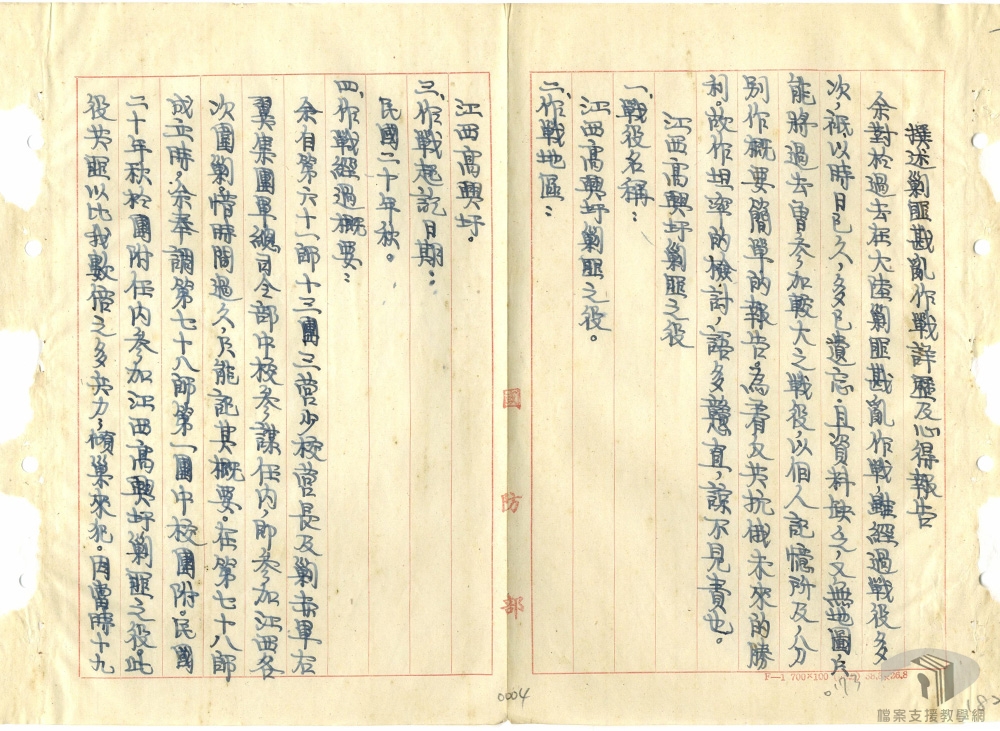 撰述剿匪戡亂作戰詳歷及心得報告
余對於過去在大陸剿匪戡亂作戰，雖經過戰役多
次，祇以時日已久，多已遺忘．且資料缺乏，又無地圖，只
能將過去曾參加較大之戰役，以個人記憶所及，分
別作概要簡單的報告。為着反共抗俄未來的勝
利。故作坦率的檢討，語多戇直，諒不見責也。
江西高興圩剿匪之役
一、戰役名稱：
江西高興圩剿匪之役。
二、作戰地區：
江西高興圩。
三、作戰起訖日期：
民國二十年秋。
四、作戰經過概要：
余自第六十一師十三團三營少校營長及剿赤軍右
翼集團軍總司令部中校參謀任內，即參加江西各
次圍剿，惜時間過久，只能記其概要。在第七十八師
成立時，余奉調第七十八師第一團中校團附。民國
二十年秋於團附任內參加江西高興圩剿匪之役。此
役共匪以比我數倍之多兵力，傾巢來犯。因當時十九
國防部
0004
F—1 700×100
182
檔案支援教學網